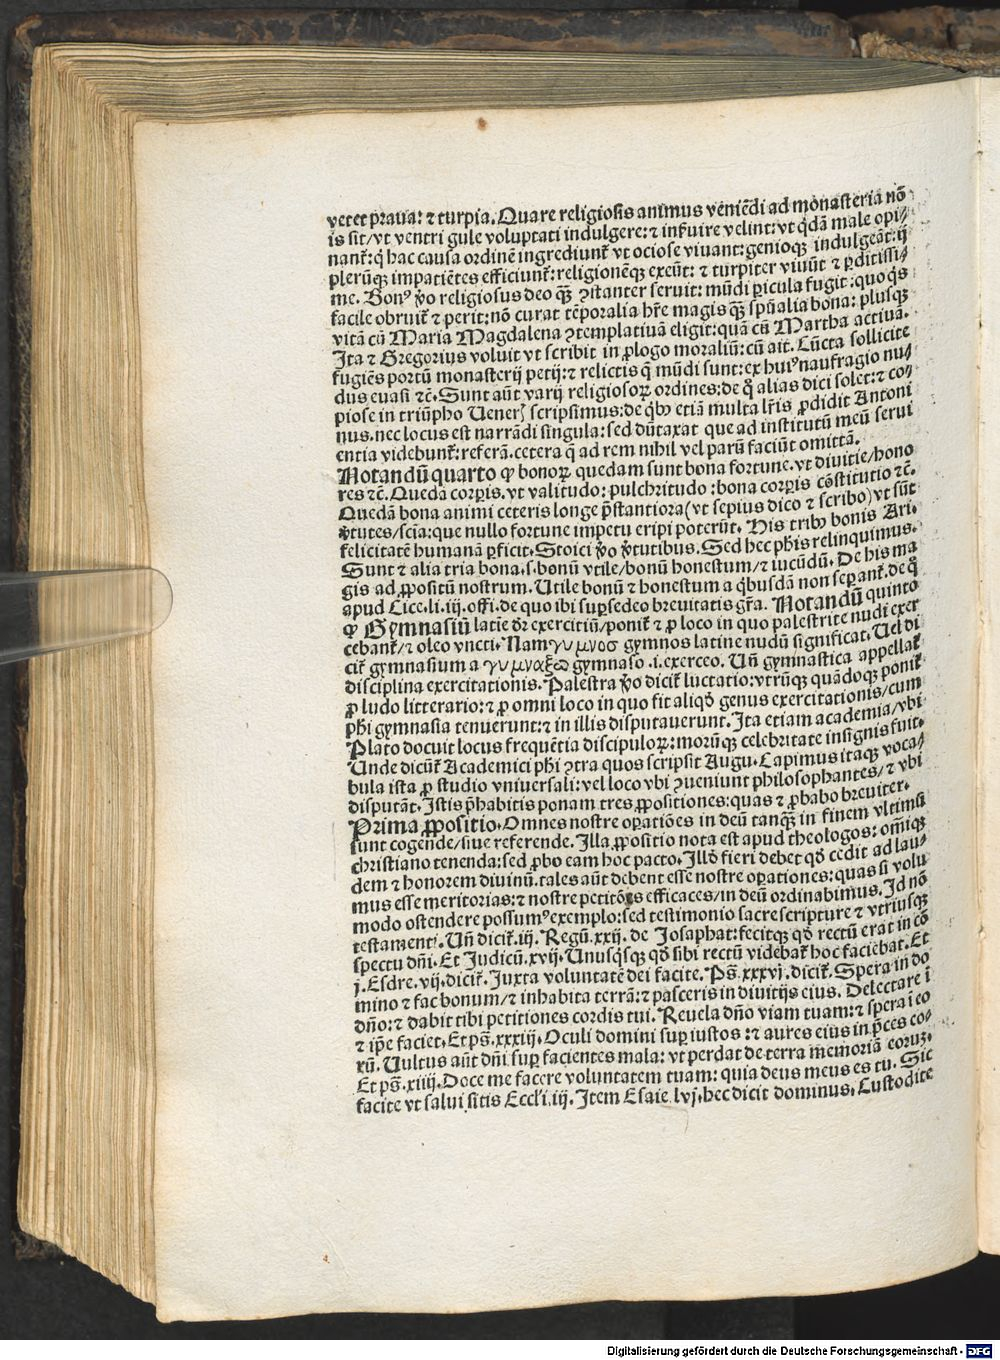 vetet praua: ⁊ turpia. Quare religiosis animus veniēdi ad monasteria nō
is sit/vt ventri gule voluptati indulgere: ⁊ inseruire velint: vt q̇dā male opi⸗
nant᷑: q̇ hac causa ordinē ingrediunt᷑ vt ociose viuant: genioqꝫ indulgeāt: ij
plerūqꝫ impatiētes efficiunt᷑: religionēqꝫ exeūt: ⁊ turpiter viuūt ⁊ ꝑditissi⸗
me. Bonꝰ ꝟo religiosus deo qꝫ̄ ꝯstanter seruit: mūdi ꝑicula fugit: quo q̇s
facile obruit᷑ ⁊ perit: nō curat tēporalia hr̄e magis qꝫ̄ spūalia bona: plusqꝫ
vitā cū Maria Magdalena ꝯtemplatiuā eligit: quā cū Martha actiuā.
Ita ⁊ Gregorius voluit vt scribit in ꝓlogo moraliū: cū ait. Cūcta sollicite
fugiēs portū monasterij petij: ⁊ relictis q̄ mūdi sunt: ex huiꝰ naufragio nu⸗
dus euasi ⁊c̄. Sunt aūt varij religiosoꝝ ordines: de q̇ alias dici solet: ⁊ co⸗
piose in triūpho Venerꝭ scripsimus: de q̇bꝰ etiā multa lr̄is ꝓdidit Antoni
nus. nec locus est narrādi singula: sed dūtaxat que ad institutū meū serui
entia videbunt᷑: referā. cetera q̄ ad rem nihil vel parū faciūt omittā.
Notandū quarto ꝙ bonoꝝ quedam sunt bona fortune. vt diuitie/hono
res ⁊c̄. Quedā corꝑis. vt valitudo: pulchritudo: bona corꝑis cōstitutio ⁊c̄.
Quedā bona animi ceteris longe p̄stantiora (vt sepius dico ⁊ scribo) vt sūt
ꝟtutes/scīa: que nullo fortune impetu eripi poterūt. His tribꝰ bonis Ari⸗
felicitatē humanā ꝑficit. Stoici ꝟo ꝟtutibus. Sed hec phīs relinquimus.
Sunt ⁊ alia tria bona. s. bonū vtile/bonū honestum/⁊ iucūdū. De his ma
gis ad ꝓpositū nostrum. Utile bonū ⁊ honestum a q̇busdā non sepant᷑. de q̇
apud Cice. li. iij. offi. de quo ibi suꝑsedeo breuitatis gr̄a. Notandū quinto
ꝙ Gymnasiū latie dr̄ exercitiū/ponit᷑ ⁊ ꝓ loco in quo palestrite nudi exer
cebant᷑/⁊ oleo vncti. Nam γυμνοσ gymnos latine nudū significat. Uel di
cit᷑ gymnasium a γυμναξω gymnaso .i. exerceo. Uñ gymnastica appellat᷑
disciplina exercitationis. Palestra ꝟo dicit᷑ luctatio: vtrūqꝫ quādoqꝫ ponit᷑
ꝓ ludo litterario: ⁊ ꝓ omni loco in quo fit aliqđ genus exercitationis/cum
phī gymnasia tenuerunt: ⁊ in illis disputauerunt. Ita etiam academia/vbi
Plato docuit locus frequētia discipuloꝝ: morūqꝫ celebritate insignis fuit.
Unde dicūt᷑ Academici phī ꝯtra quos scripsit Augu. Capimus itaqꝫ voca⸗
bula ista ꝓ studio vniuersali: vel loco vbi ꝯueniunt philosophantes/⁊ vbi
disputāt. Istis p̄habitis ponam tres ꝓpositiones: quas ⁊ ꝓbabo breuiter.
Prima ꝓpositio. Omnes nostre oꝑatiōes in deū tanqꝫ̄ in finem vltimū
sunt cogende/siue referende. Illa ꝓpositio nota est apud theologos: om̄iqꝫ
christiano tenenda: sed ꝓbo eam hoc pacto. Illđ fieri debet qđ cedit ad lau⸗
dem ⁊ honorem diuinū. tales aūt debent esse nostre oꝑationes: quas si volu
mus esse meritorias: ⁊ nostre petitōes efficaces/in deū ordinabimus. Id nō
modo ostendere possumꝰ exemplo: sed testimonio sacre scripture ⁊ vtriusqꝫ
testamenti. Uñ dicit᷑. iij. Regū. xxij. de Josaphat: fecitqꝫ qđ rectū erat in cō
spectu dñi. Et Judicū. xvij. Unusq̇sqꝫ qđ sibi rectū videbat᷑ hoc faciebat. Et
j. Esdre. vij. dicit᷑. Juxta voluntatē dei facite. Ps̄. xxxvj. dicit᷑. Spera in do
mino ⁊ fac bonum/⁊ inhabita terrā: ⁊ pasceris in diuitijs eius. Delectare ī
dño: ⁊ dabit tibi petitiones cordis tui. Reuela dño viam tuam: ⁊ spera ī eo
⁊ ip̄e faciet. Et ps̄. xxxiij. Oculi domini suꝑ iustos: ⁊ aures eius in p̄ces eo⸗
rū. Uultus aūt dñi suꝑ facientes mala: vt perdat de terra memoriā eoruꝫ.
Et ps̄. xiiij. Doce me facere voluntatem tuam: quia deus meus es tu. Sic
facite vt salui sitis Eccl'i. iij. Item Esaie lvj. hec dicit dominus. Custodite
Digitalisierung gefördert durch die Deutsche Forschungsgemeinschaft - DFG